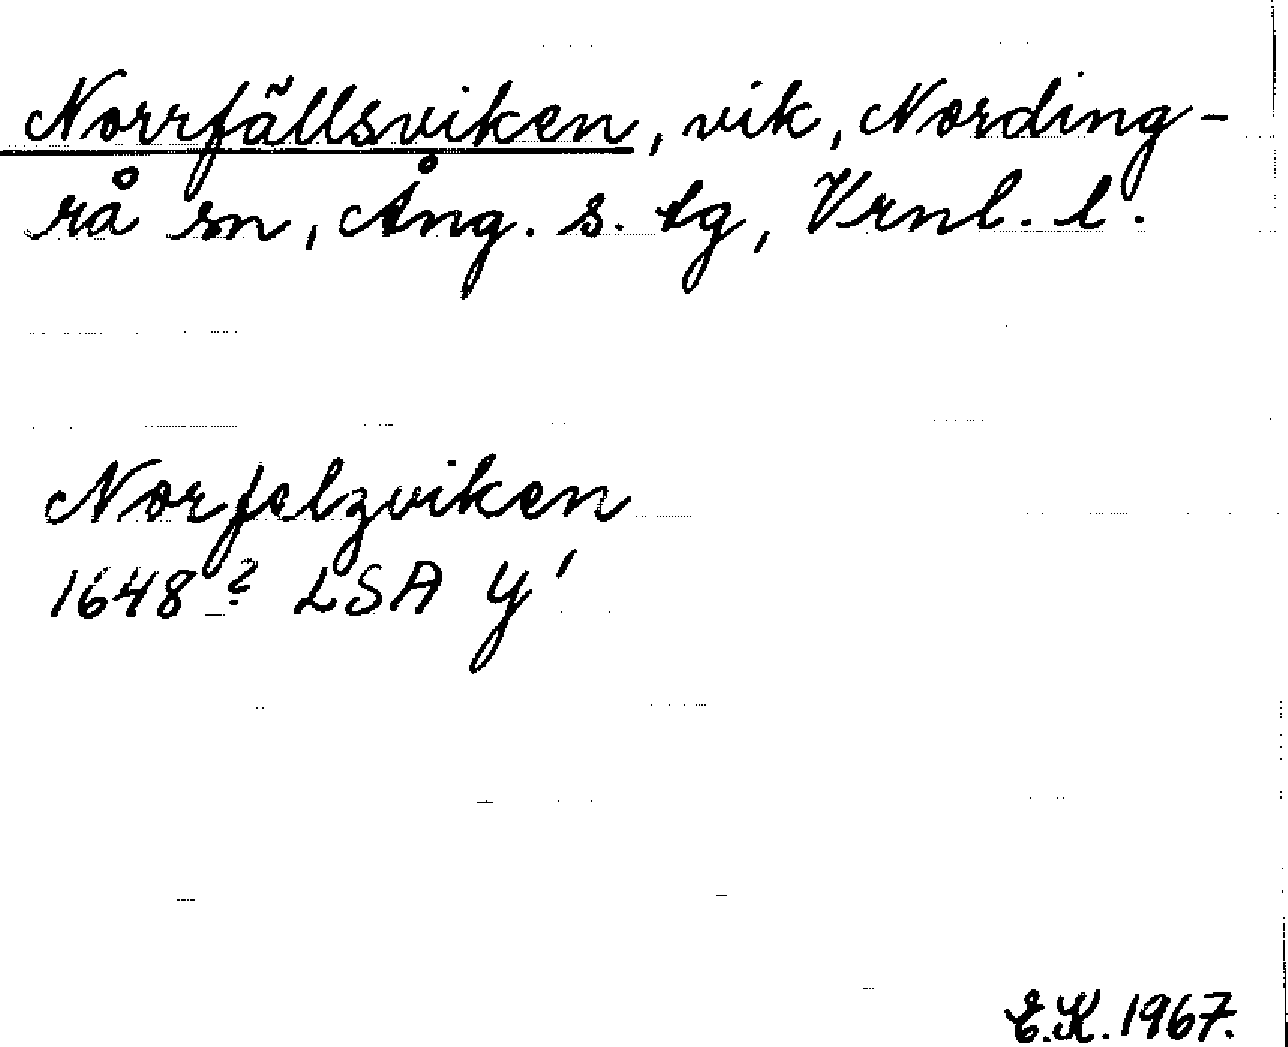 Norrfällsviken, vik, Nording-
rå sn, Ång. s. tg, Vrnl. l.
Norfelzviken
1648? LSA Y'
E.K. 1967.